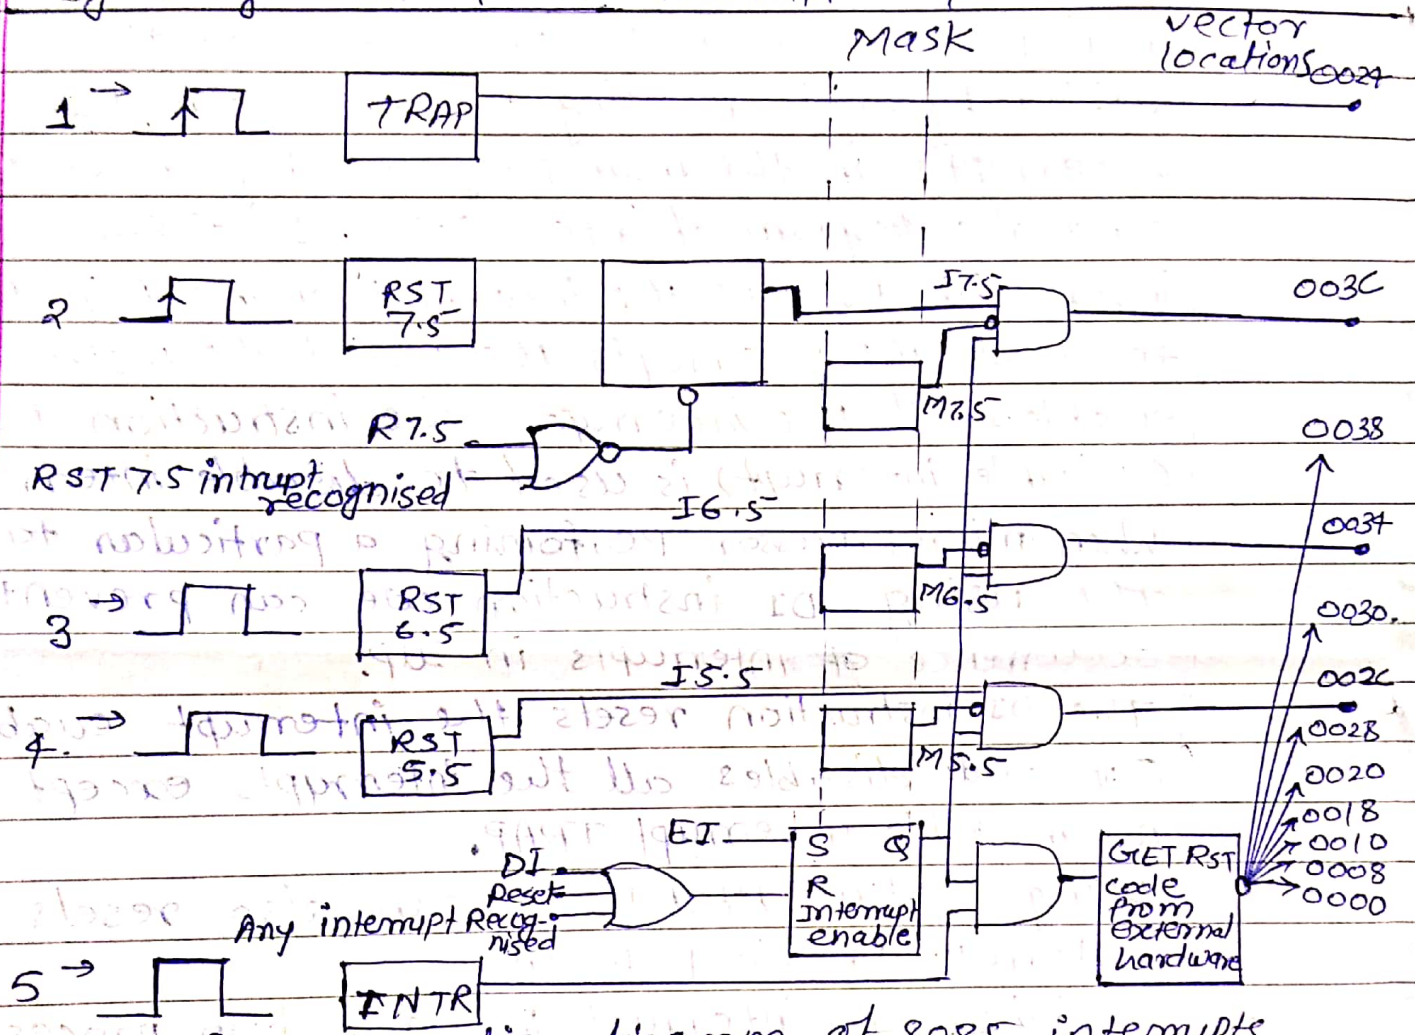 Mask
vector
locations
0024
1 → TRAP
2 RST
7.5
I7.5
003C
M7.5
R7.5
RST 7.5 intrupt
recognised
0038
I6.5
0034
3 → RST
6.5
M6.5
0030.
I5.5
002C
4. → RST
5.5
M5.5
0028
0020
0018
0010
0008
0000
EI
S Q
R
Interrupt
enable
DI
Reset
Any interrupt Recog-
nised
GET RST
code
from
external
hardware
5 → INTR
of 8085 interrupts